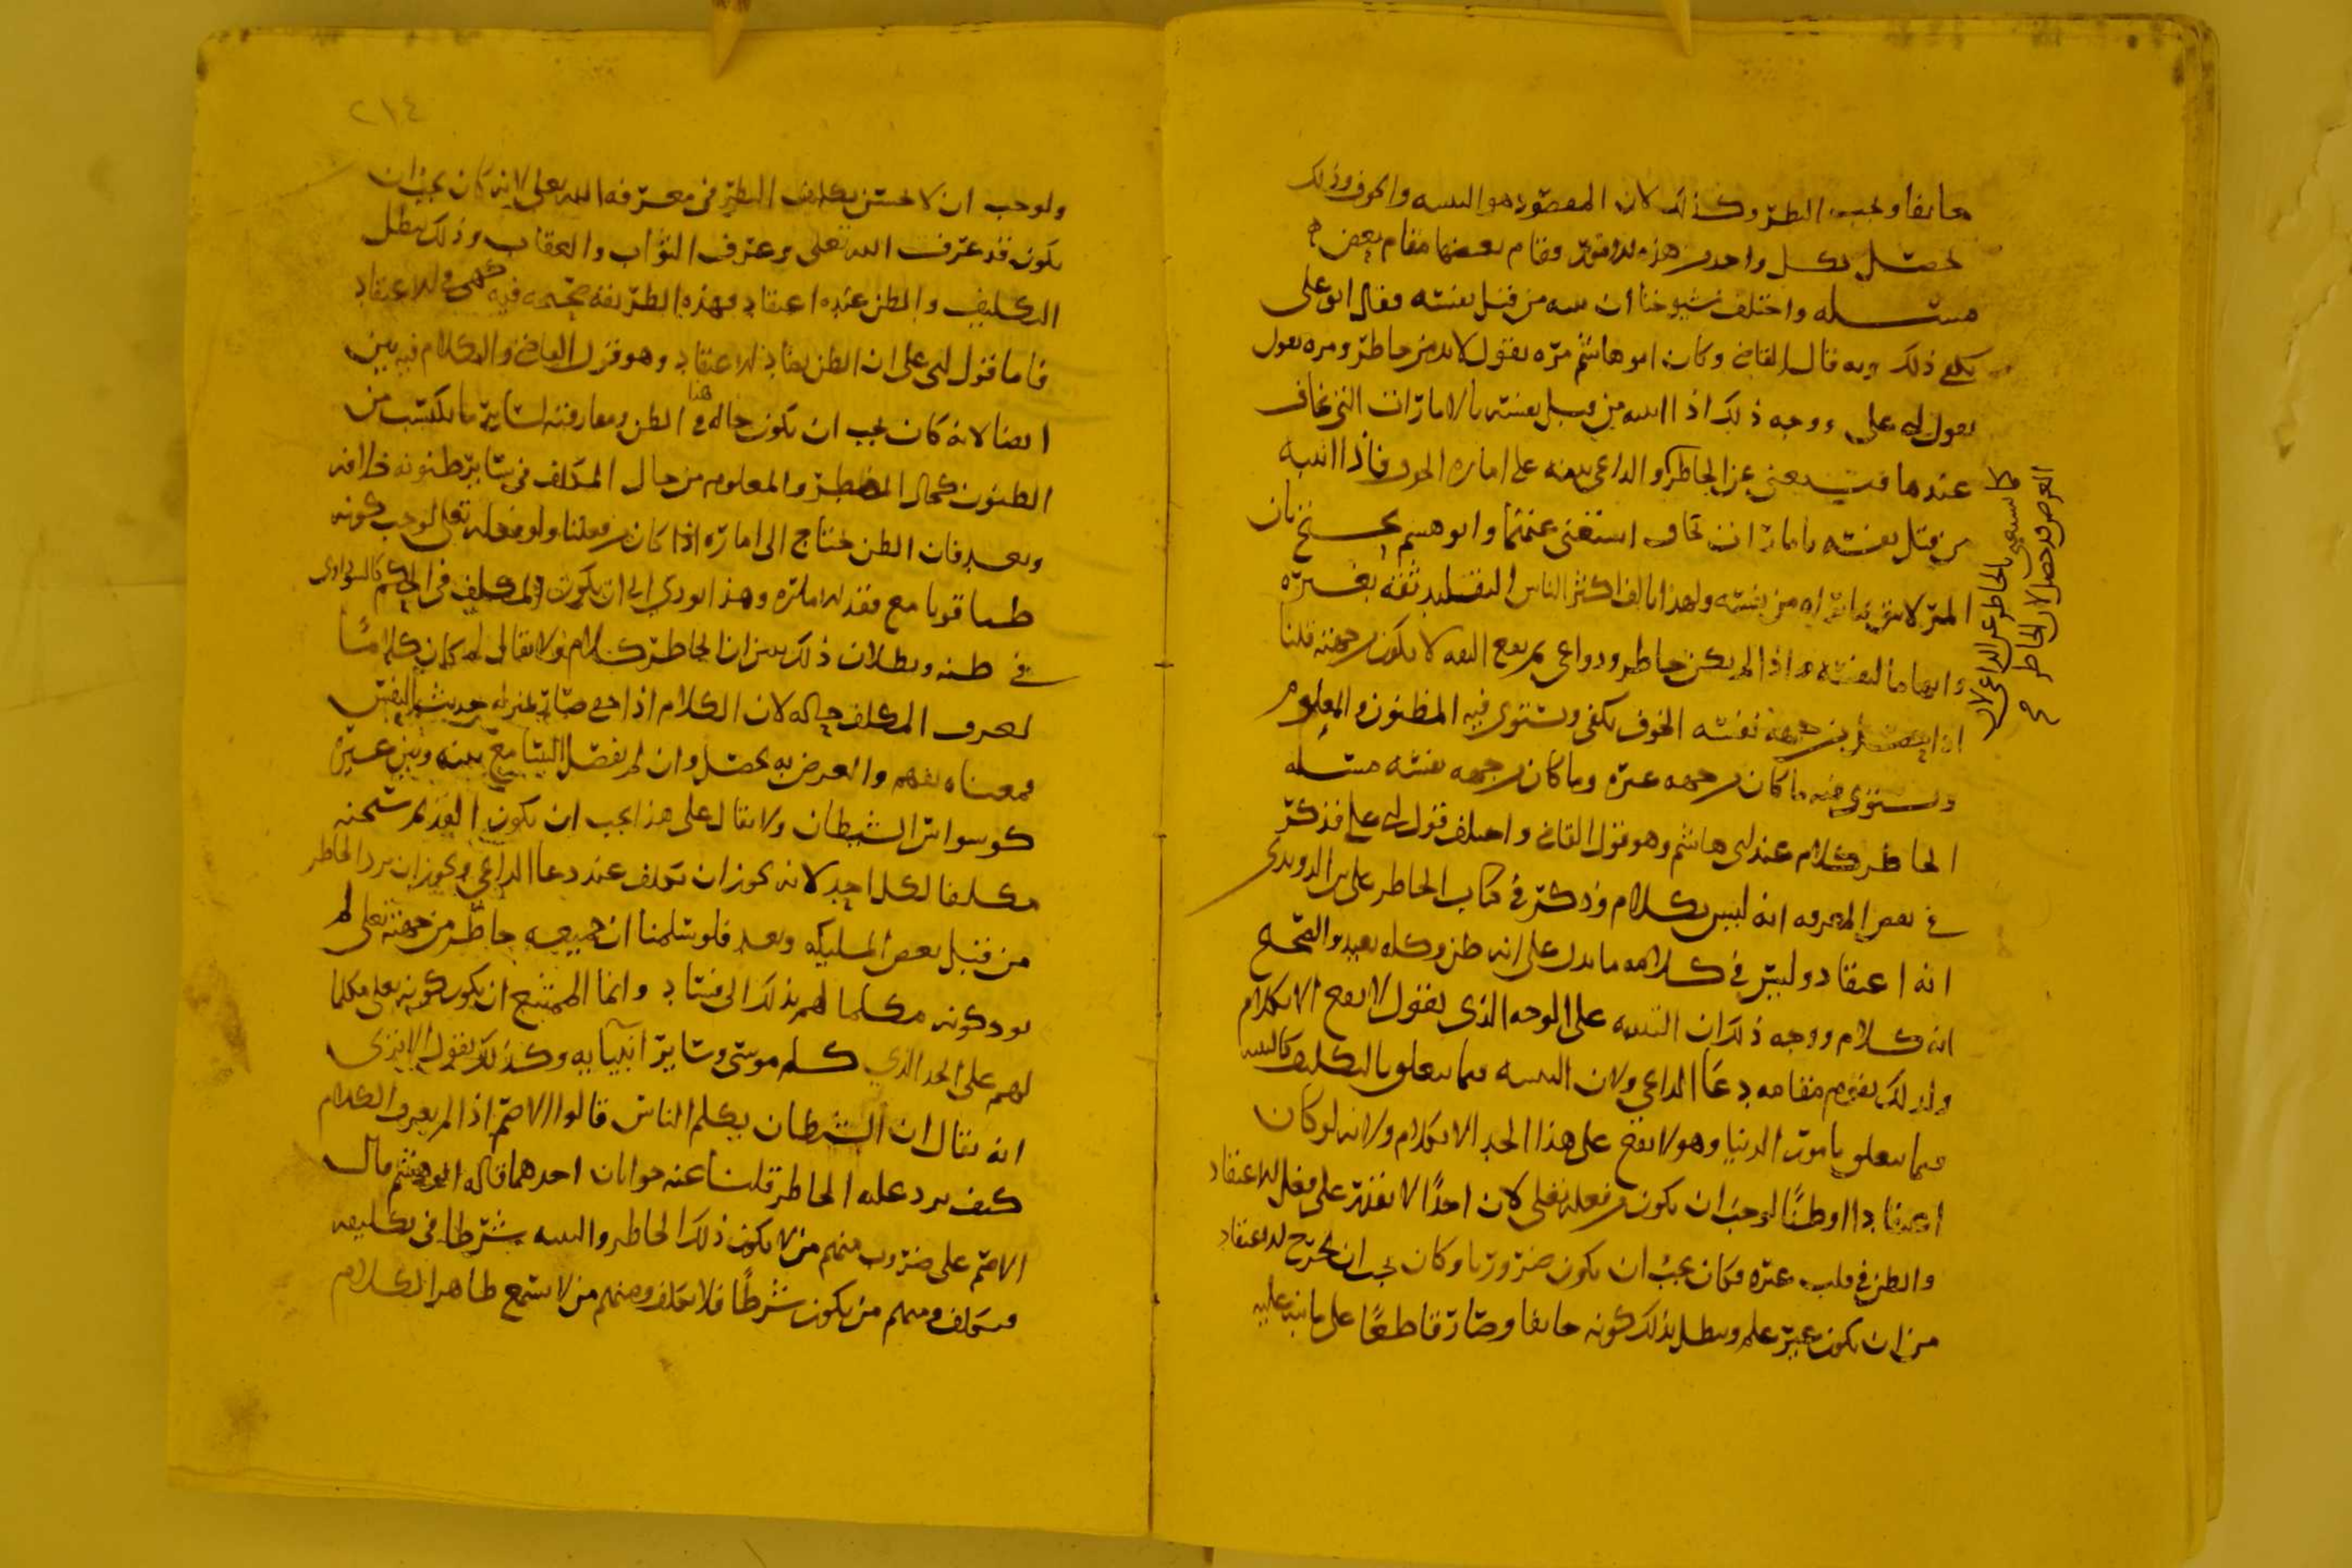 خائفا ويجب النظر وكذلك لان المقصود هو التنبيه والخوف وذلك
يحصل بكل واحد من هذه الامور وقام بعضها مقام بعض ه
مسئله واختلف شيوخنا ان تنبه من قبل نفسه فقال ابو علي
يكفي ذلك وبه قال القاضي وكان ابو هاشم مره يقول لابد من خاطر ومره يقول
بقول ابي علي ووجه ذلك اذا انتبه من قبل نفسه بالامارات التي يخاف
عندها يستغني عن الخاطر والداعي تنبيهه على اماره الخوف فاذا انتبه
من قبل نفسه بامارات تخاف استغنى عنهما وابو هاشم يحتج بان
المرء لا يثق بما يراه من نفسه ولهذا يالف اكثر الناس التقليد ثقه بغيره
واتهاما لنفسه واذا لم يكن خاطر ودواعي لم يقع الثقه لا يكون من جهته قلنا
اذا من جهه نفسه الخوف يكفي ويستوي فيه المظنون والمعلوم
ويستوي فيه ما كان من جهه غيره وما كان من جهه نفسه مسئله
الخاطر كلام عند ابي هاشم وهو قول القاضي واختلف قول ابي علي فذكر
في بعض المعرفه انه ليس بكلام وذكر في كتاب الخاطر على ابن الروندي
انه اعتقاد وليس في كلامه ما يدل على انه ظن وكله بعيد والصحيح
انه كلام ووجه ذلك ان التنبيه على الوجه الذي يقول لا يقع الا بكلام
ولذلك يقوم مقامه دعا الداعي ولان التنبيه فيما يتعلق بالتكليف كالتنبيه
فيما يتعلق بامور الدنيا وهو لا يقع على هذا الحد الا بكلام ولانه لو كان
اعتقادا او ظنا لوجب ان يكون من فعله تعالى لان احدا لا يقدر على فعل الاعتقاد
والظن في قلب غيره فكان يجب ان يكون ضروريا وكان يجب ان يخرج الاعتقاد
من ان يكون غير علم ويبطل بذلك كونه خائفا وصار قاطعا على ما نبه عليه
كما يستغنى بالخاطر عن الداعي لان
الغرض قد حصل لا بالخاطر
٢١٤
ولوجب ان لا يحسن تكليف النظر في معرفه الله تعالى لانه كان يجب ان
يكون قد عرف الله تعالى وعرف الثواب والعقاب وذلك يبطل
التكليف والظن عنده اعتقاد فهذه الطريقه صحيحه فيه كهي في الاعتقاد
فاما قول ابي علي ان الظن يضاد الاعتقاد وهو قول القاضي والكلام فيه بين
ايضا لانه كان يجب ان يكون حاله في هذا الظن ومفارقته لسائر ما يكتسب من
الظنون كحال المضطر والمعلوم من حال المكلف في سائر ظنونه خلافه
وبعد فان الظن يحتاج الى اماره اذا كان من فعلنا ولو فعله تعالى لوجب كونه
ظنا قويا مع فقد الاماره وهذا يودي الى ان يكون المكلف في الحكم كالسوداوي
في ظنه وبطلان ذلك يبين ان الخاطر كلام ولا يقال له كان كلاما
لعرف المكلف حاله لان الكلام اذا خفي صار بمنزله حديث النفس
فمعناه يفهم والغرض به يحصل وان لم يفصل السامع بينه وبين غيره
كوسواس الشيطان ولا يقال على هذا يجب ان يكون القديم سبحنه
مكلما لكل احد لانه يجوز ان يكلف عند دعا الداعي ويجوز ان يرد الخاطر
من قبل بعض المليكه وبعد فلو سلمنا ان جميعه خاطر من جهته تعالى لم
يود كونه مكلما لهم بذلك الى فساد وانما الممتنع ان يكون كونه تعالى مكلما
لهم على الحد الذي كلم موسى وسائر انبيايه وكذلك يقول الا ترى
انه يقال ان الشيطان يكلم الناس قالوا الاصم اذا لم يعرف الكلام
كيف يرد عليه الخاطر قلنا عنه جوابان احدهما قاله ابو هاشم قال
الاصم على ضروب منهم من لا يكون ذلك الخاطر والتنبيه شرطا في تكليفه
فيكلف ومنهم من يكون شرطا فلا يكلف ومنهم من لا يسمع ظاهر الكلام